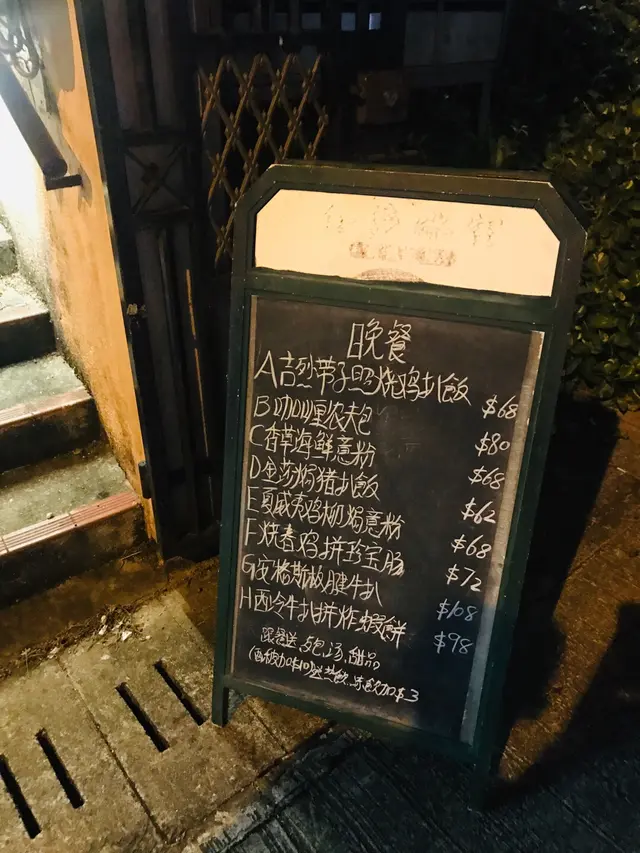 晚餐
A 吉烈带子照烧鸡扒飯 $68
B 咖喱农夫包 $80
C 香草海鲜意粉 $68
D 金莎焗猪扒飯 $62
E 夏威夷鸡柳焗意粉 $68
F 烧春鸡拼珍宝肠 $72
G 安格斯板腱牛扒 $108
H 西冷牛扒拼炸蝦餅 $98
跟餐送 包,汤,甜品
加$10)送热飲,冻飲加$3